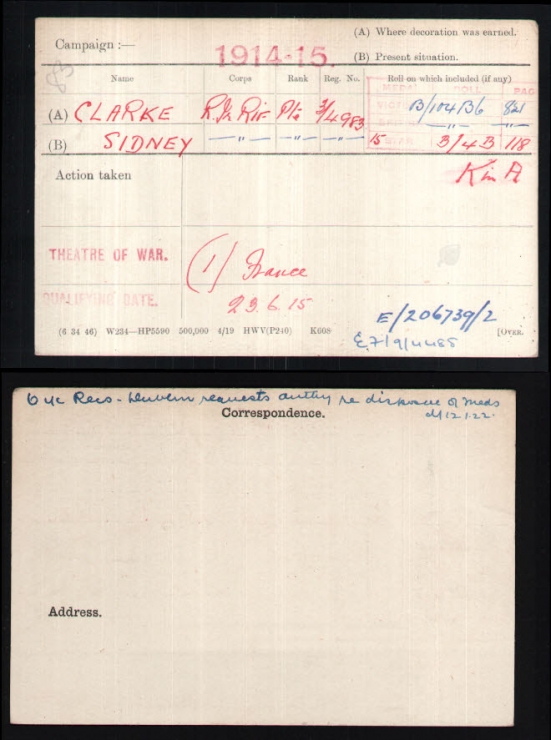 Campaign :—
1914-15.
(A) Where decoration was earned.
(B) Present situation.
Name Corps Rank Reg. No. Roll on which included (if any)
MEDAL ROLL PAG
(A) CLARKE R. Ir Rif Pte 3/4983 VICTO B/104 B6 821
(B) SIDNEY —"— —"— —"— 15 STAR B/4 B 118
Action taken K in A
THEATRE OF WAR. (1) France
QUALIFYING DATE. 23.6.15
E/206739/2
(6 34 46) W234—HP5590 500,000 4/19 HWV(P240) K608 [OVER.
E.7/9/4485
O i/c Recs - requests authy re disposal of Meds
d/12.1.22.
Correspondence.
Address.